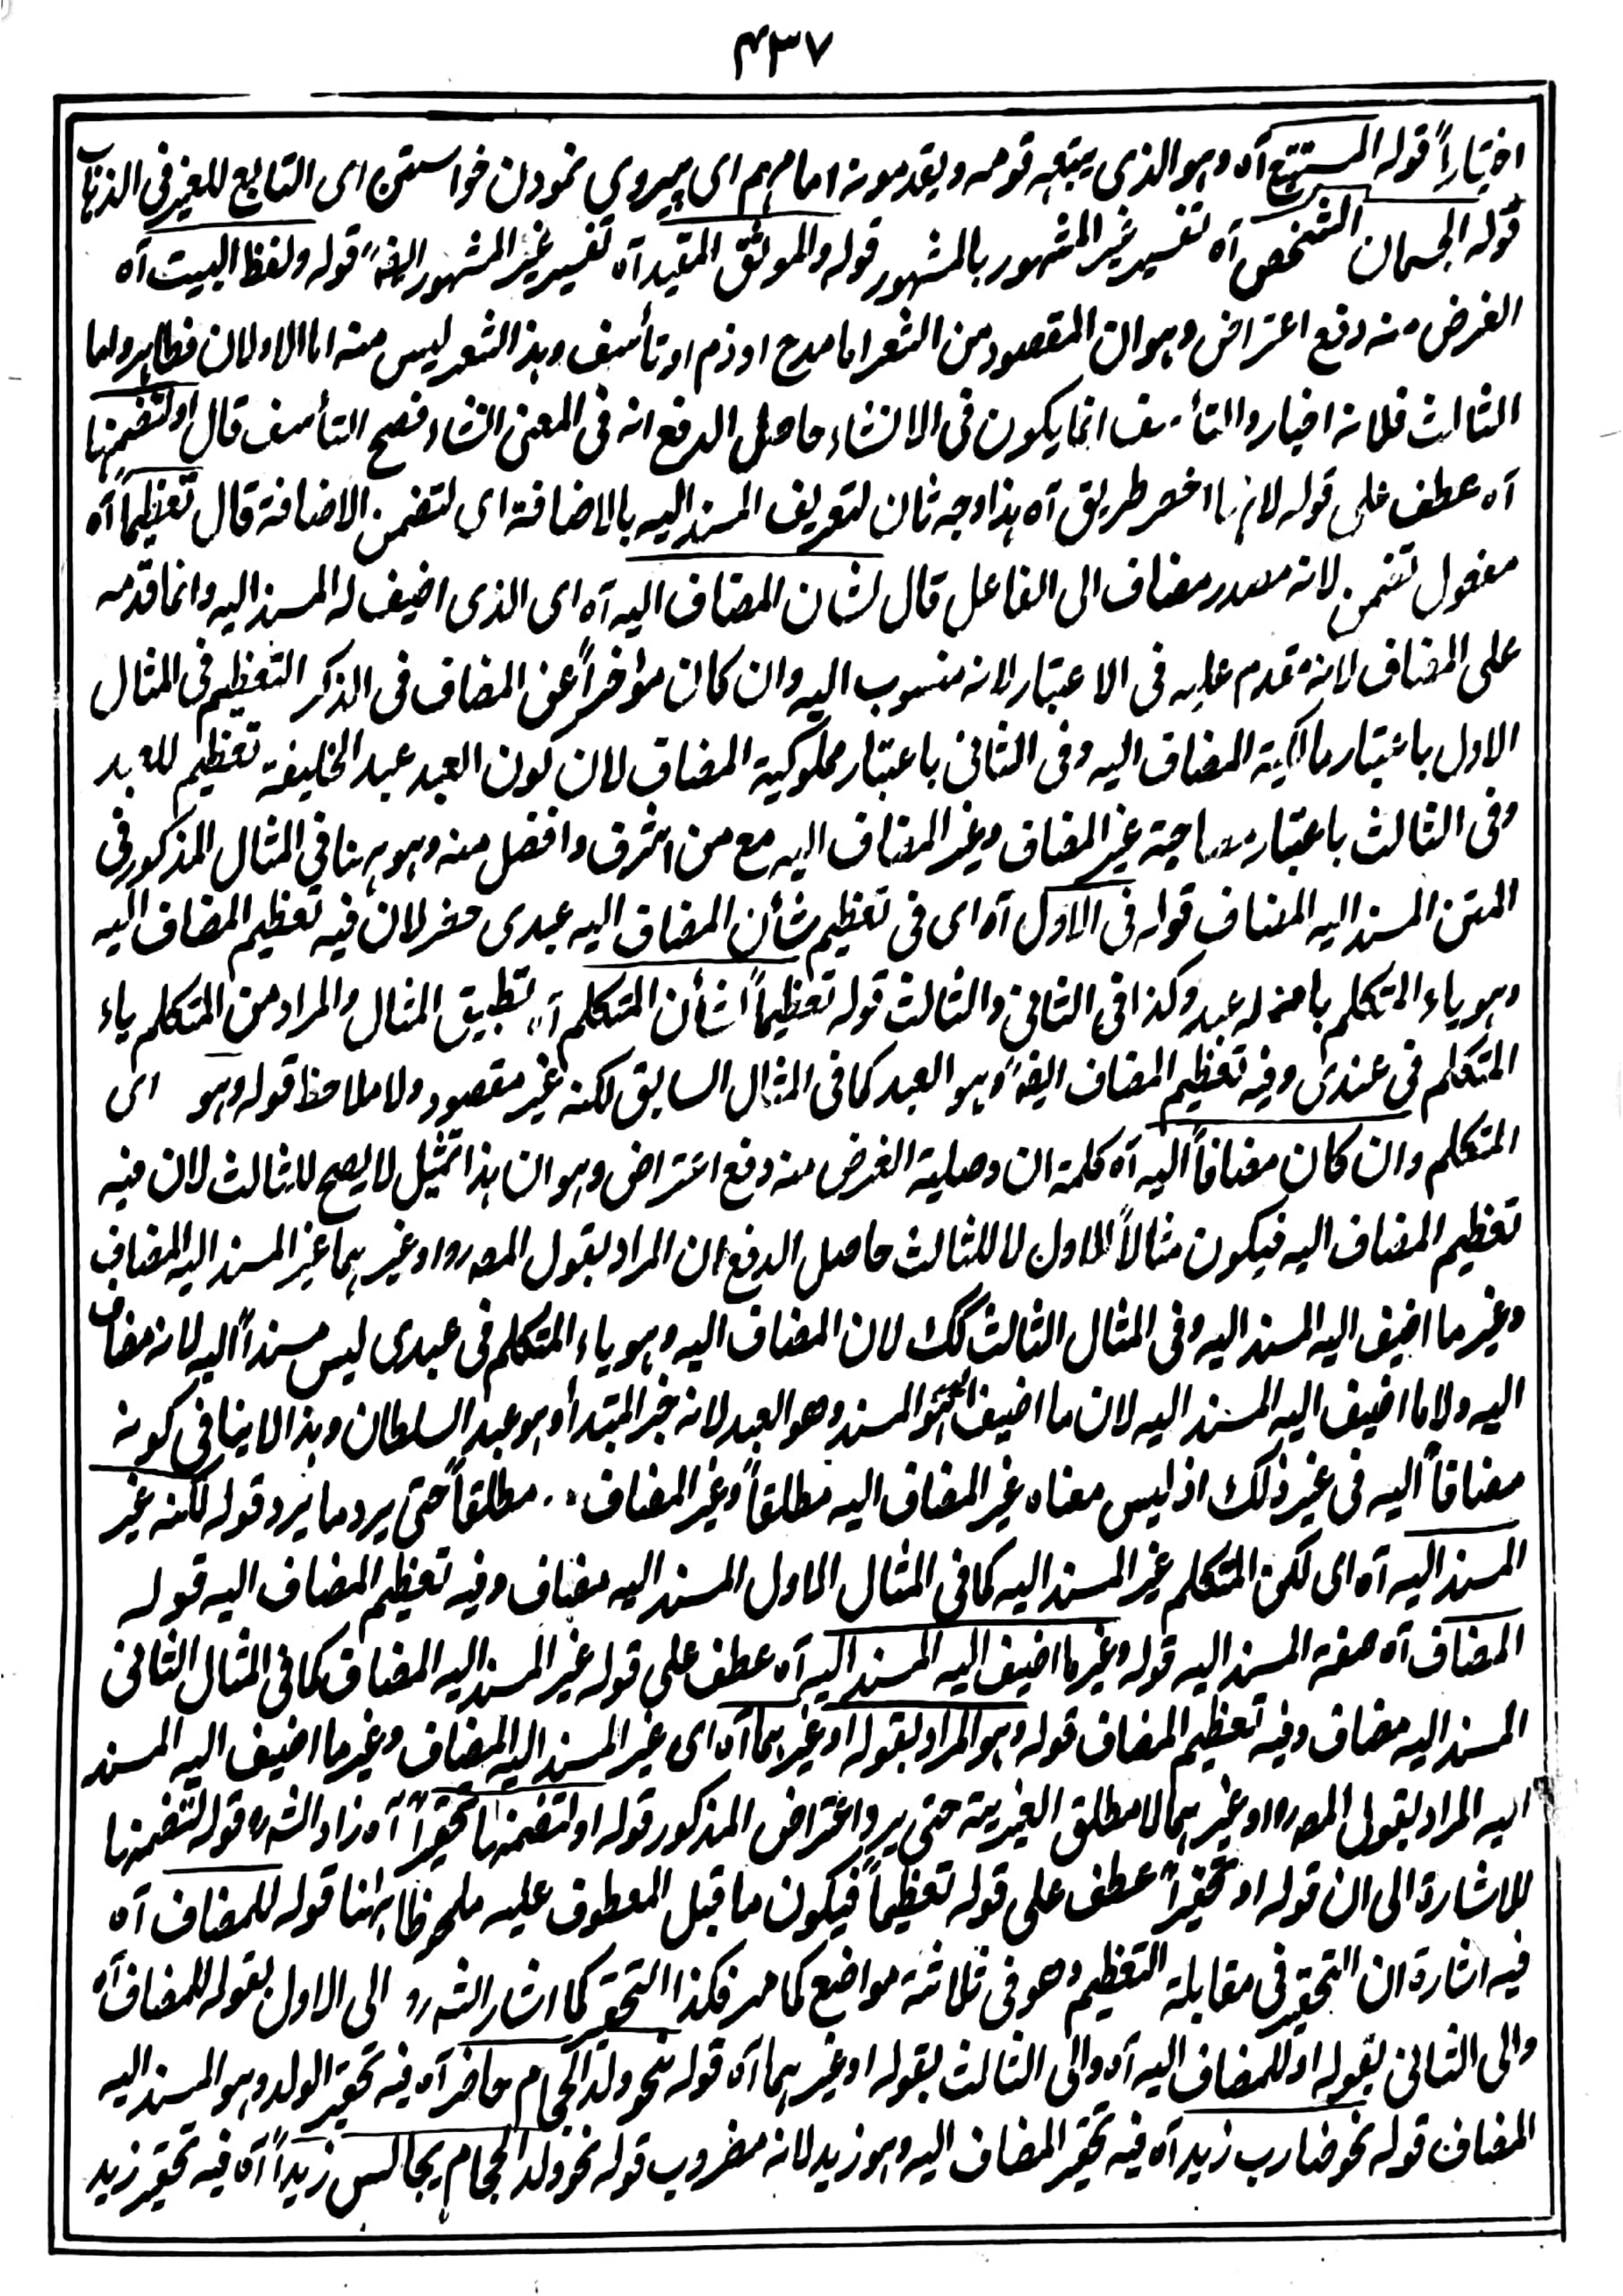 ۴۳۷
اختیاراً قوله المستتبع آه وهو الذی یتبعه قومه ویقدمونه امامهم ای پیروی نمودن خواستن ای التابع للغیر فی الذهاب
قوله الجسمان الشخص آه تفسیر غیر المشهور بالمشهور قوله والموثق المقید آه تفسیر غیر المشهور ایضاً قوله ولفظ البیت آه
الغرض منه دفع اعتراض وهو ان المقصود من الشعر اما مدح او ذم او تأسف وهذا الشعر لیس منه اما الاولان فظاهر واما
الثالث فلانه اخبار والتأسف انما یکون فی الانشاء حاصل الدفع انه فی المعنی انشاء فصح التأسف قال اولتضمنها
آه عطف علی قوله لانها اخصر طریق آه هذا وجه ثان لتعریف المسند الیه بالاضافة ای لتضمن الاضافة قال تعظیماً آه
مفعول تضمن لانه مصدر مضاف الی الفاعل قال لشان المضاف الیه آه ای الذی اضیف له المسند الیه وانما قدمه
علی المضاف لانه مقدم علیه فی الاعتبار لانه منسوب الیه وان کان مؤخراً عن المضاف فی الذکر التعظیم فی المثال
الاول باعتبار مالکیة المضاف الیه وفی الثانی باعتبار مملوکیة المضاف لان کون العبد عبد الخلیفة تعظیم للعبد
وفی الثالث باعتبار مصاحبة غیر المضاف وغیر المضاف الیه مع من اشرف وافضل منه وهو ههنا فی المثال المذکور فی
المتن المسند الیه المضاف قوله فی الاول آه ای فی تعظیم شأن المضاف الیه عبدی حضر لان فیه تعظیم المضاف الیه
وهو یاء المتکلم بان له عبد وکذا فی الثانی والثالث قوله تعظیماً لشأن المتکلم آه تطبیق المثال والمراد من المتکلم یاء
المتکلم فی عندی وفیه تعظیم المضاف ایضاً وهو العبد کما فی المثال السابق لکنه غیر مقصود ولا ملاحظ قوله وهو ای
المتکلم وان کان مضافاً الیه آه کلمة ان وصلیة الغرض منه دفع اعتراض وهو ان هذا تمثیل لا یصح للثالث لان فیه
تعظیم المضاف الیه فیکون مثالاً للاول لا للثالث حاصل الدفع ان المراد بقول المصرد او غیرهما غیر المسند الیه المضاف
وغیر ما اضیف الیه المسند الیه وفی المثال الثالث کک لان المضاف الیه وهو یاء المتکلم فی عبدی لیس مسنداً الیه لانه مضاف
الیه ولا ما اضیف الیه المسند الیه لان ما اضیف الیه هو المسند وهو العبد لانه خبر المبتدأ وهو عبد السلطان وهذا لا ینافی کونه
مضافاً الیه فی غیر ذلک اذ لیس معناه غیر المضاف الیه مطلقاً وغیر المضاف مطلقاً حتی یرد ما یرد قوله لکنه غیر
المسند الیه آه ای لکن المتکلم غیر المسند الیه کما فی المثال الاول المسند الیه مضاف وفیه تعظیم المضاف الیه قوله
المضاف آه صفة المسند الیه قوله وغیر ما اضیف الیه المسند الیه آه عطف علی قوله غیر المسند الیه المضاف کما فی المثال الثانی
المسند الیه مضاف وفیه تعظیم المضاف قوله وهو المراد بقوله او غیرهما آه ای غیر المسند الیه المضاف وغیر ما اضیف الیه المسند
الیه المراد بقول المصرد او غیرهما لا مطلق الغیریة حتی یرد اعتراض المذکور قوله اولتضمنها تحقیراً آه زاد الشه ره قوله لتضمنها
للاشارة الی ان قوله او تحقیراً عطف علی قوله تعظیماً فیکون ما قبل المعطوف علیه ملحوظاً ههنا قوله للمضاف آه
فیه اشارة ان التحقیر فی مقابلة التعظیم وهو فی ثلاثة مواضع کما مر فکذا التحقیر کما اشار الشه ره الی الاول بقوله للمضاف آه
والی الثانی بقوله او للمضاف الیه آه والی الثالث بقوله او غیرهما آه قوله نحو ولد الحجام حاضر آه فیه تحقیر الولد وهو المسند الیه
المضاف قوله نحو ضارب زید آه فیه تحقیر المضاف الیه وهو زید لانه مضروب قوله نحو ولد الحجام یجالس زیداً آه فیه تحقیر زید